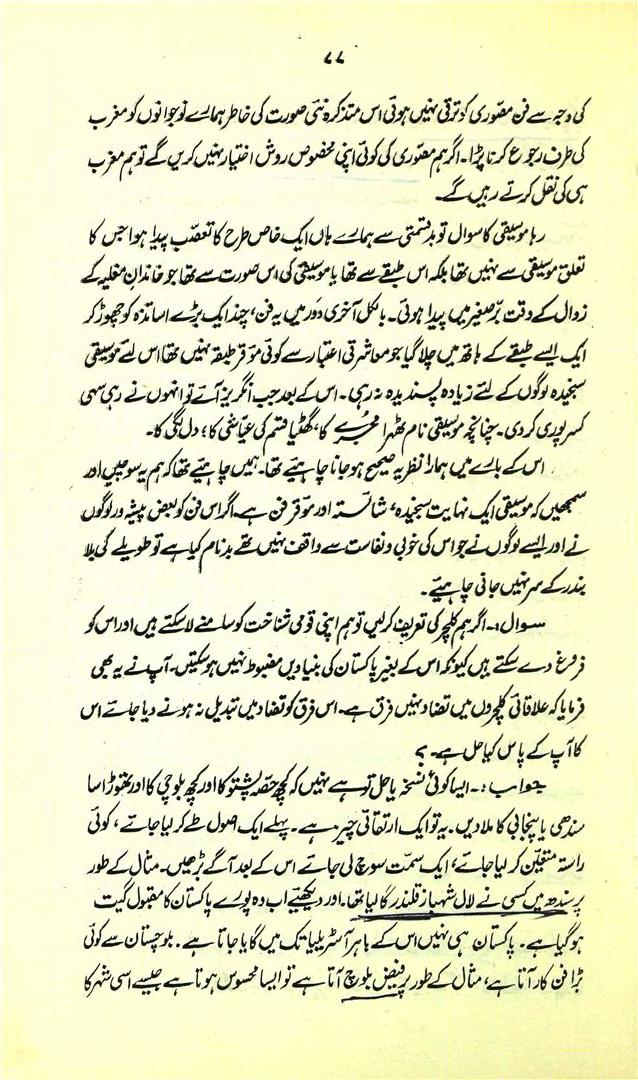 ۷۷
کی وجہ سے فن مصوری کو ترقی نہیں ہوئی اس متذکرہ نئی صورت کی خاطر ہمارے نوجوانوں کو مغرب
کی طرف رجوع کرنا پڑا۔ اگر ہم مصوری کی کوئی اپنی مخصوص روش اختیار نہیں کریں گے تو ہم مغرب
ہی کی نقل کرتے رہیں گے۔
رہا موسیقی کا سوال تو بدقسمتی سے ہمارے ہاں ایک خاص طرح کا تعصّب پیدا ہوا جس کا
تعلق موسیقی سے نہیں تھا بلکہ اس طبقے سے تھا یا موسیقی کی اس صورت سے تھا جو خاندانِ مغلیہ کے
زوال کے وقت برّصغیر میں پیدا ہوئی۔ بالکل آخری دَور میں یہ فن، چند ایک بڑے اساتذہ کو چھوڑ کر
ایک ایسے طبقے کے ہاتھ میں چلا گیا جو معاشرتی اعتبار سے کوئی مؤقر طبقہ نہیں تھا اس لئے موسیقی
سنجیدہ لوگوں کے لئے زیادہ پسندیدہ نہ رہی۔ اس کے بعد جب انگریز آئے تو انہوں نے رہی سہی
کسر پوری کر دی۔ چنانچہ موسیقی نام ٹھہرا مجرے کا، گھٹیا قسم کی عیّاشی کا، دل لگی کا۔
اس کے بارے میں ہمارا نظریہ صحیح ہو جانا چاہیئے تھا۔ ہمیں چاہیئے تھا کہ ہم یہ سوچیں اور
سمجھیں کہ موسیقی ایک نہایت سنجیدہ، شائستہ اور مؤقر فن ہے۔ اگر اس فن کو بعض پیشہ ور لوگوں
نے اور ایسے لوگوں نے جو اس کی خوبی و نفاست سے واقف نہیں تھے بدنام کیا ہے تو طویلے کی بلا
بندر کے سر نہیں جانی چاہیئے۔
سوال :۔ اگر ہم کلچر کی تعریف کر لیں تو ہم اپنی قومی شناخت کو سامنے لا سکتے ہیں اور اس کو
فروغ دے سکتے ہیں کیونکہ اس کے بغیر پاکستان کی بنیادیں مضبوط نہیں ہو سکتیں۔ آپ نے یہ بھی
فرمایا کہ علاقائی کلچروں میں تضاد نہیں فرق ہے۔ اس فرق کو تضاد میں تبدیل نہ ہونے دیا جائے اس
کا آپ کے پاس کیا حل ہے۔ ؟
جواب :۔ ایسا کوئی نسخہ یا حل تو ہے نہیں کہ کچھ حصّہ پشتو کا اور کچھ بلوچی کا اور تھوڑا سا
سندھی یا پنجابی کا ملا دیں۔ یہ تو ایک ارتقائی چیز ہے۔ پہلے ایک اصول طے کر لیا جائے، کوئی
راستہ متعیّن کر لیا جائے، ایک سمت سوچ لی جائے اس کے بعد آگے بڑھیں۔ مثال کے طور
پر سندھ میں کسی نے لال شہباز قلندر گا لیا تھا۔ اور دیکھئے اب وہ پورے پاکستان کا مقبول گیت
ہو گیا ہے۔ پاکستان ہی نہیں اس کے باہر آسٹریلیا تک میں گایا جاتا ہے۔ بلوچستان سے کوئی
بڑا فن کار آتا ہے، مثال کے طور پر فیض بلوچ آتا ہے تو ایسا محسوس ہوتا ہے جیسے اسی شہر کا